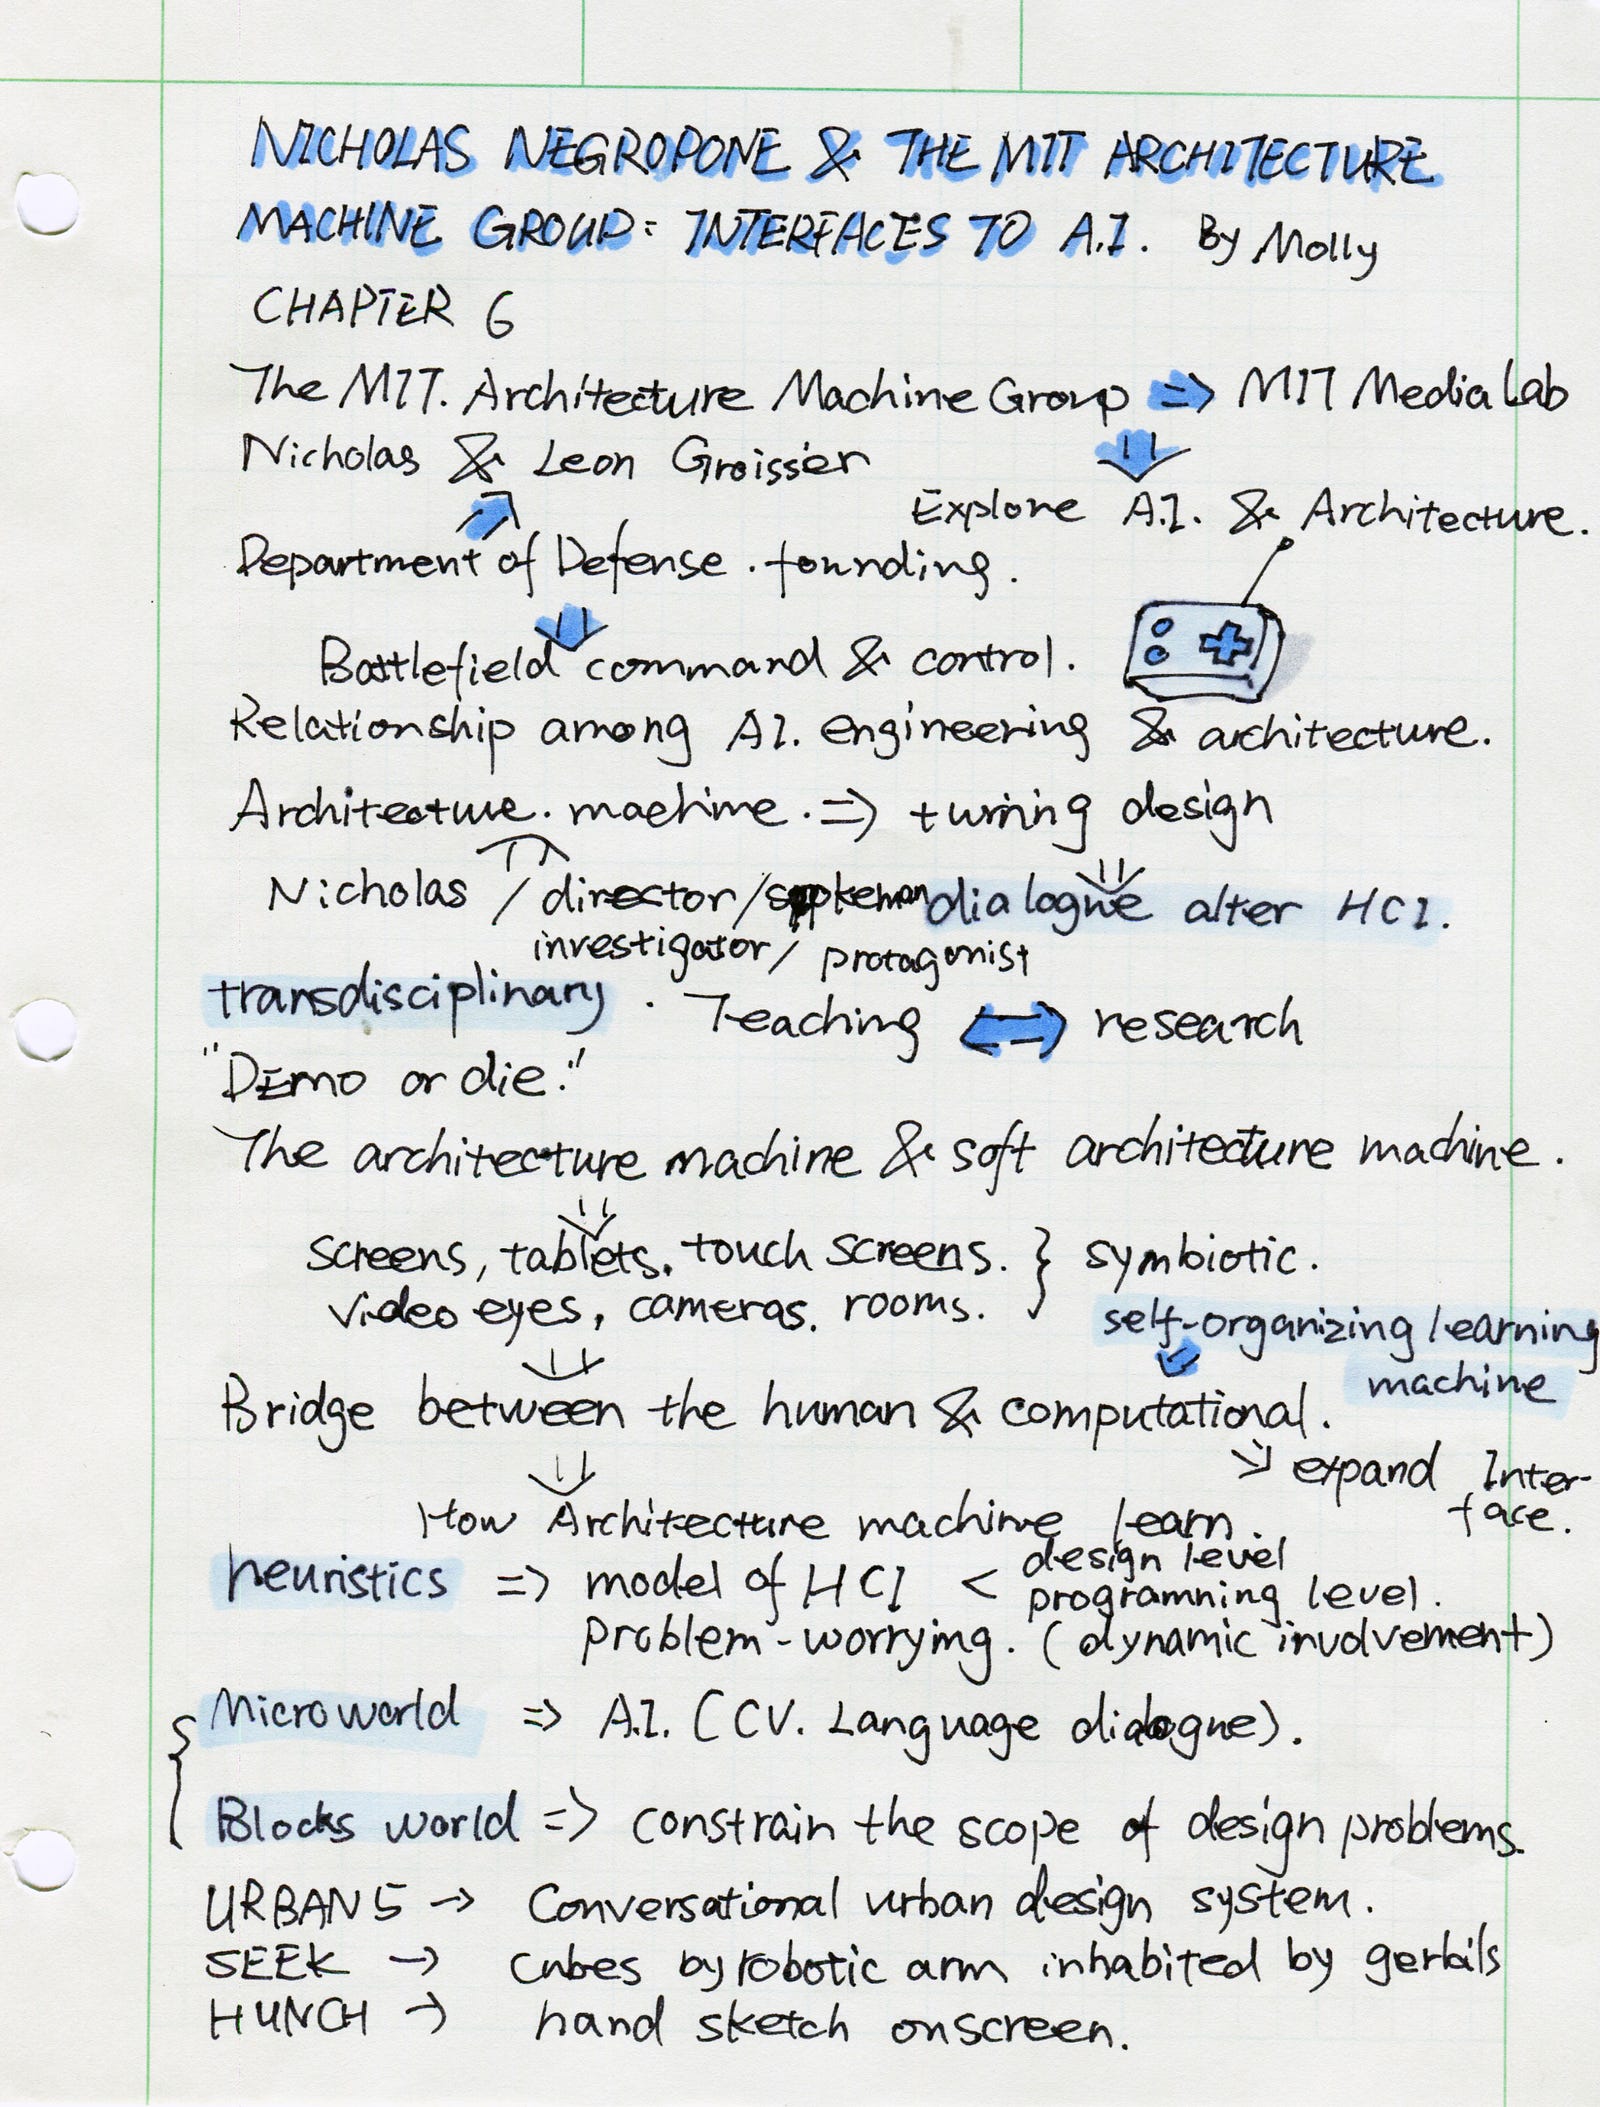 NICHOLAS NEGROPONE & THE MIT ARCHITECTURE
MACHINE GROUP: INTERFACES TO A.I. By Molly
CHAPTER 6
The MIT. Architecture Machine Group => MIT Media Lab
Nicholas & Leon Groisser
Explore A.I. & Architecture.
Department of Defense . founding.
Battlefield command & control.
Relationship among A.I. engineering & architecture.
Architecture. machine. => turning design
Nicholas / director / dialogue alter HCI.
investigator / protagonist
transdisciplinary . Teaching <=> research
"Demo or die."
The architecture machine & soft architecture machine.
screens, tablets, touch screens. } symbiotic.
video eyes, cameras. rooms.
self-organizing learning
machine
Bridge between the human & computational.
expand Inter-
face.
How Architecture machine learn.
heuristics => model of HCI < design level
programming level.
problem-worrying. (dynamic involvement)
Microworld => A.I. (CV. Language dialogue).
Blocks world => constrain the scope of design problems.
URBAN 5 -> Conversational urban design system.
SEEK -> cubes by robotic arm inhabited by gerbils
HUNCH -> hand sketch onscreen.